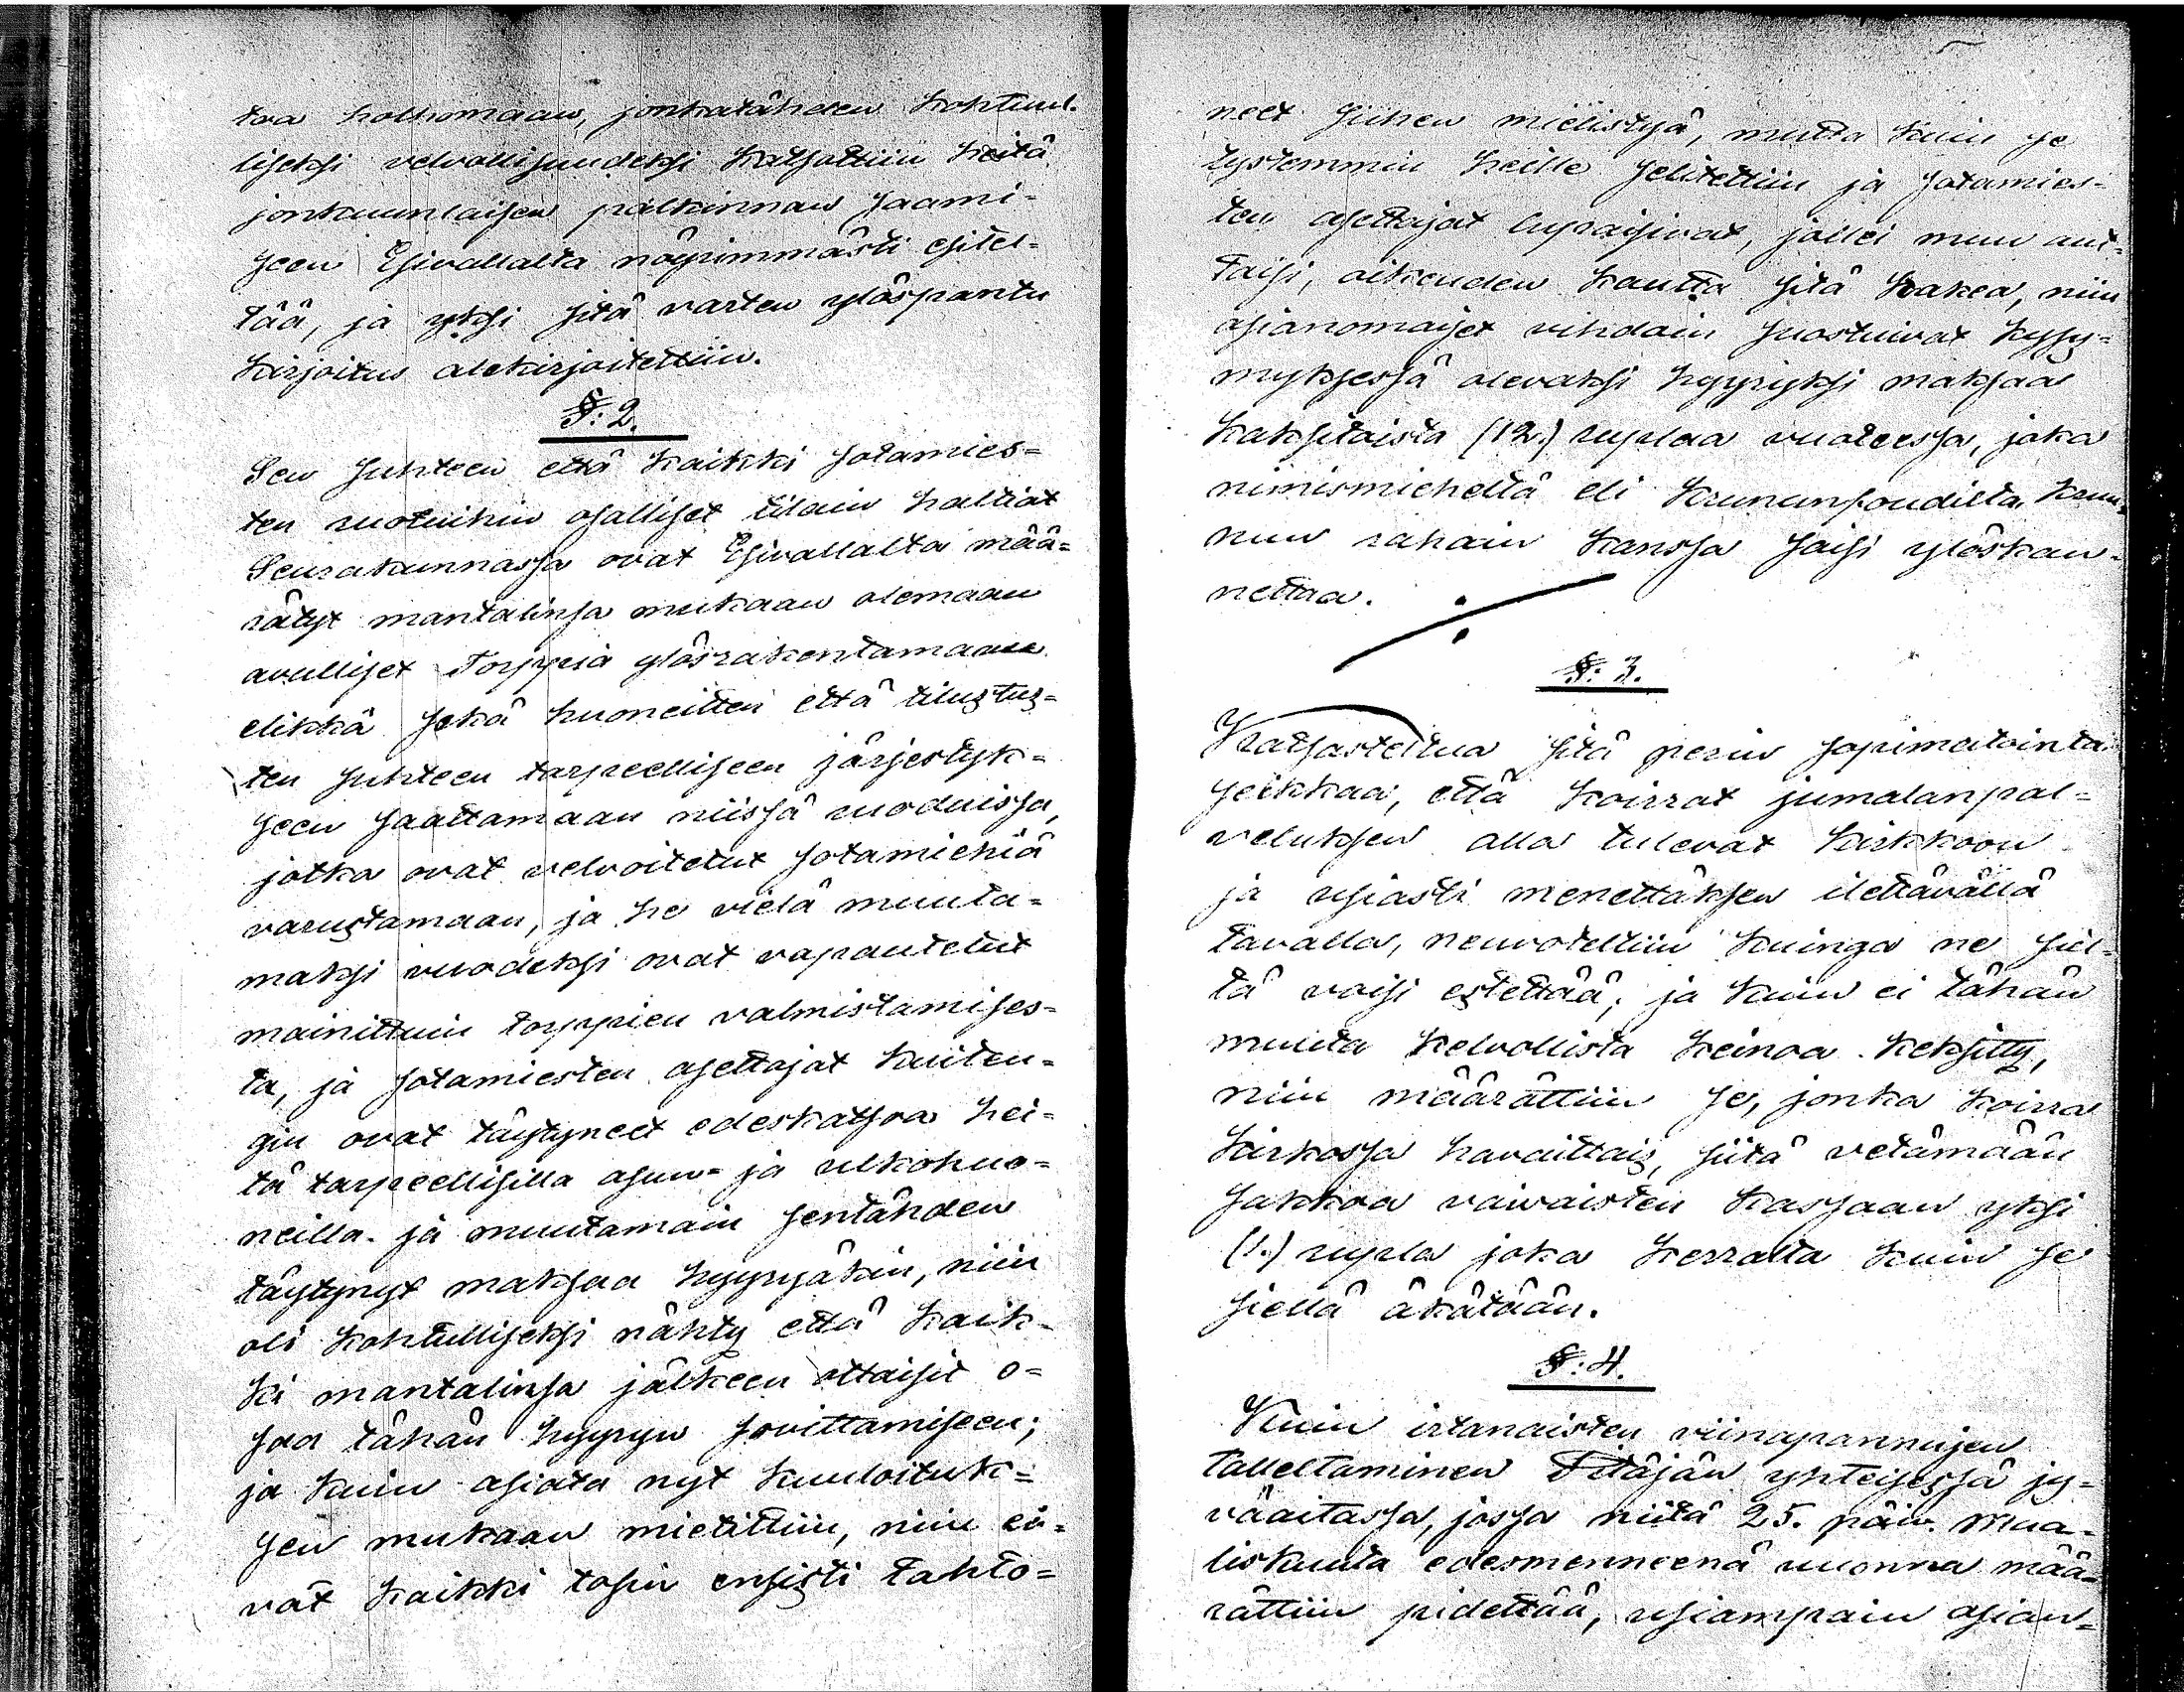 taa holhomaan, jonkatähden kohtuul-
liseksi velvollisuudeksi katsottiin heitä
jonkuunlaisen palkinnan saami-
seen Esivallalta nöyrimmästi esitel-
tää, ja yksi sitä varten ylöspantu
kirjoitus alekirjoitettiin.
§: 2.
Sen suhteen että kaikki sotamies-
ten ruotuihin osalliset tilain haltiat
Seurakunnassa ovat Esivallalta mää-
rätyt mantalinsa mukaan olemaan
avulliset Torppia ylösrakentamaan
elikkä sekä huoneitten että tilustus-
ten suhteen tarpeelliseen järjestyk-
seen saattamaan niissä ruoduissa,
jotka ovat velvoitetut sotamiehiä
varustamaan, ja he vielä muuta-
maksi vuodeksi ovat vapautetut
mainittuin torppien valmistamises-
ta, ja sotamiesten asettajat kuiten-
gin ovat täytyneet edeskatsoa hei-
tä tarpeellisilla asuu- ja ulkohuo-
neilla ja muutamain sentähden
täytynyt maksaa hyyryäkin, niin
oli kohtulliseksi nähty että kaik-
ki mantalinsa jälkeen ottaisit o-
saa tähän hyyryn sovittamiseen;
ja kuin asiata nyt kuuloituk-
sen mukaan mietittiin, niin ei-
vät kaikki tosin ensisti tahto-
neet siihen mielistyä, mutta kuin se
tystemmin heille selitettiin ja sotamies-
ten asettajat lupaisivat, jollei muu aut-
taisi, oikeuden kautta sitä hakea, niin
asianomaiset vihdoin suostuivat kysy-
myksessä olevaksi hyyryksi maksaa
kaksitoista (12.) ruplaa vuoteessa, joka
nimismieheltä eli kruununfoudilta kruu-
nun rahain kanssa saisi ylöskan-
nettaa.
§: 3.
Katsasteltua sitä perin sopimatointa
seikkaa, että koirrat jumalanpal-
veluksen alla tulevat kirkkoon
ja usiasti menettäksen ilettävällä
tavalla, neuvoteltiin kuinga ne siel-
tä voisi estettää; ja kuin ei tähän
muuta kelvollista keinoa keksitty,
niin määrättiin se, jonka koirra
kirkossa havaittais, siitä vetämään
sakkoa vaivaisten kassaan yksi
(1.) rupla joka kerralta kuin se
siellä äkätään.
§: 4.
Kuin irtanaisten viinapannujen
talleltaminen Pitäjän yhteisessä jy-
väaitassa, jossa niitä 25. päiv. Maa-
liskuuta edesmenneenä vuonna mää-
rättiin pidettää, usiampain asian-